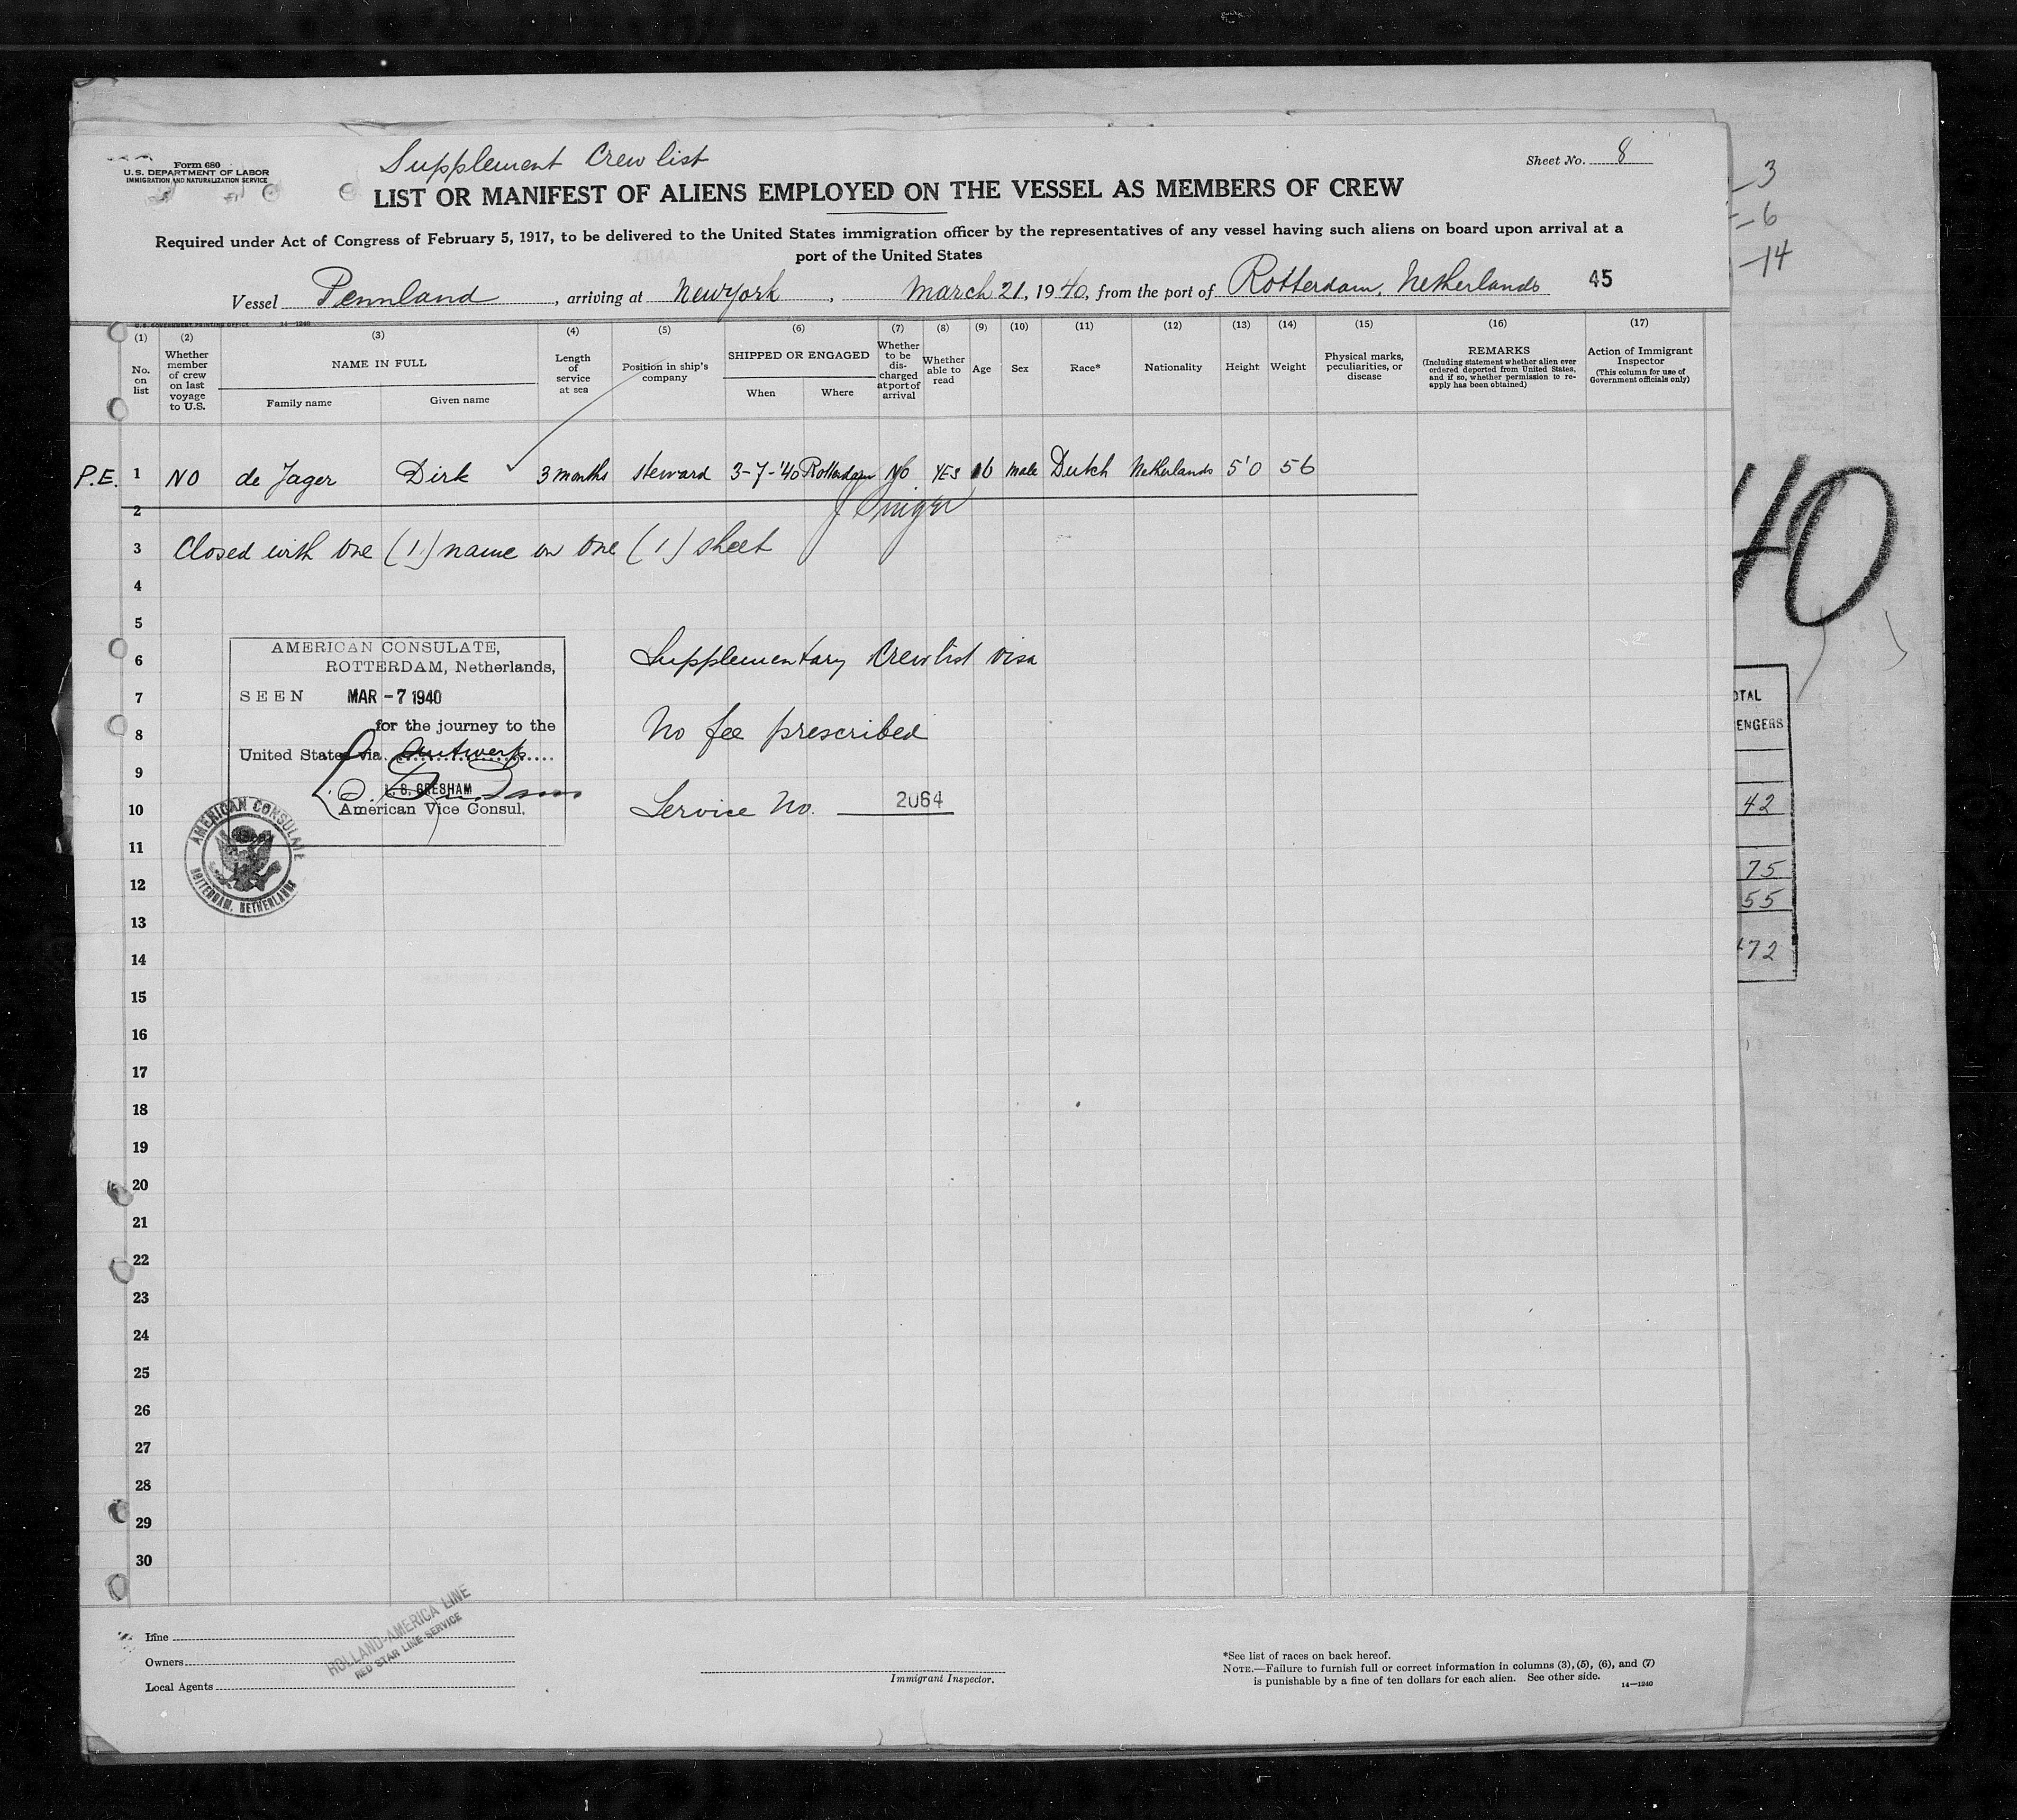 Form 680
U.S. DEPARTMENT OF LABOR
IMMIGRATION AND NATURALIZATION SERVICE
Supplement Crew list
Sheet No. 8
LIST OR MANIFEST OF ALIENS EMPLOYED ON THE VESSEL AS MEMBERS OF CREW
Required under Act of Congress of February 5, 1917, to be delivered to the United States immigration officer by the representatives of any vessel having such aliens on board upon arrival at a
port of the United States
Vessel Pennland, arriving at New York, March 21, 1940, from the port of Rotterdam, Netherlands 45
U.S. GOVERNMENT PRINTING OFFICE 14—1240
(1) (2) (3) (4) (5) (6) (7) (8) (9) (10) (11) (12) (13) (14) (15) (16) (17)
No. on list
Whether member of crew on last voyage to U.S.
NAME IN FULL
Family name
Given name
Length of service at sea
Position in ship's company
SHIPPED OR ENGAGED
When
Where
Whether to be discharged at port of arrival
Whether able to read
Age
Sex
Race*
Nationality
Height
Weight
Physical marks, peculiarities, or disease
REMARKS
(Including statement whether alien ever ordered deported from United States, and if so, whether permission to re-apply has been obtained)
Action of Immigrant Inspector
(This column for use of Government officials only)
P.E. 1 NO de Jager Dirk 3 months steward 3-7-'40 Rotterdam No YES 16 male Dutch Netherlands 5'0 56
2
3 Closed with one (1) name on one (1) sheet
4
5
6
7
8
9
10
11
12
13
14
15
16
17
18
19
20
21
22
23
24
25
26
27
28
29
30
AMERICAN CONSULATE,
ROTTERDAM, Netherlands,
SEEN MAR -7 1940
for the journey to the
United States via Antwerp
L. S. GRESHAM
American Vice Consul.
AMERICAN CONSULATE
ROTTERDAM, NETHERLANDS
Supplementary Crewlist visa
No fee prescribed
Service No. 2064
-3
-6
-14
40
TOTAL
ENGERS
42
75
55
472
Line
Owners
Local Agents
HOLLAND-AMERICA LINE
RED STAR LINE SERVICE
Immigrant Inspector.
*See list of races on back hereof.
NOTE.—Failure to furnish full or correct information in columns (3), (5), (6), and (7)
is punishable by a fine of ten dollars for each alien. See other side.
14—1240